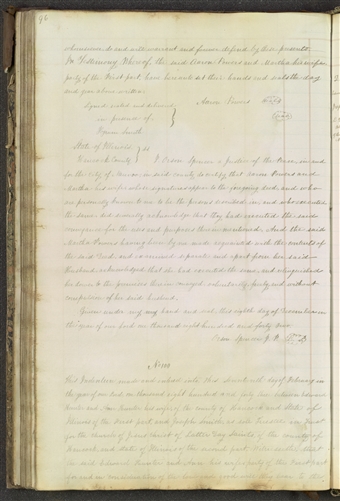 96
administrators do and will warrant and forever defend by these presents.
In Testimony Whereof, the said Aaron Powers and Martha his wife
party of the First part, have hereunto set their hands and seals the day
and year above written.
Signed sealed and delivered } Aaron Powers
in presence of
Hyrum Smith
State of Illinois }
Hancock County } ss I Orson Spencer a Justice of the Peace, in and
for the City of Nauvoo, in said County do certify that Aaron Powers and
Martha his wife whose signatures appear to the foregoing deed, and who
are personally known to me to be the persons described in, and who executed
the same did severally acknowledge that they had executed the said
conveyance for the uses and purposes therein mentioned. And the said
Martha Powers having been by me made acquainted with the contents of
the said Deed, and examined separate and apart from her said
Husband acknowledged that she had executed the same, and relinquished
her dower to the premises therein conveyed voluntarily freely and without
compulsion of her said husband.
Given under my hand and seal, this eighth day of
the year of our Lord one thousand eight hundred and forty
Orson Spencer J. P.
This Indenture, made and entered into this day of February in
the year of our Lord, one thousand eight hundred and forty two between Edward
Hunter and Ann Hunter his wife of the County of Hancock and State of
Illinois of the First part and Joseph Smith, as sole Trustee in Trust
for the Church of Jesus Christ of Latter Day Saints of the County of
Hancock, and State of Illinois of the second part. Witnesseth, that
the said Edward Hunter and Ann his wife party of the First part
for and in consideration of the